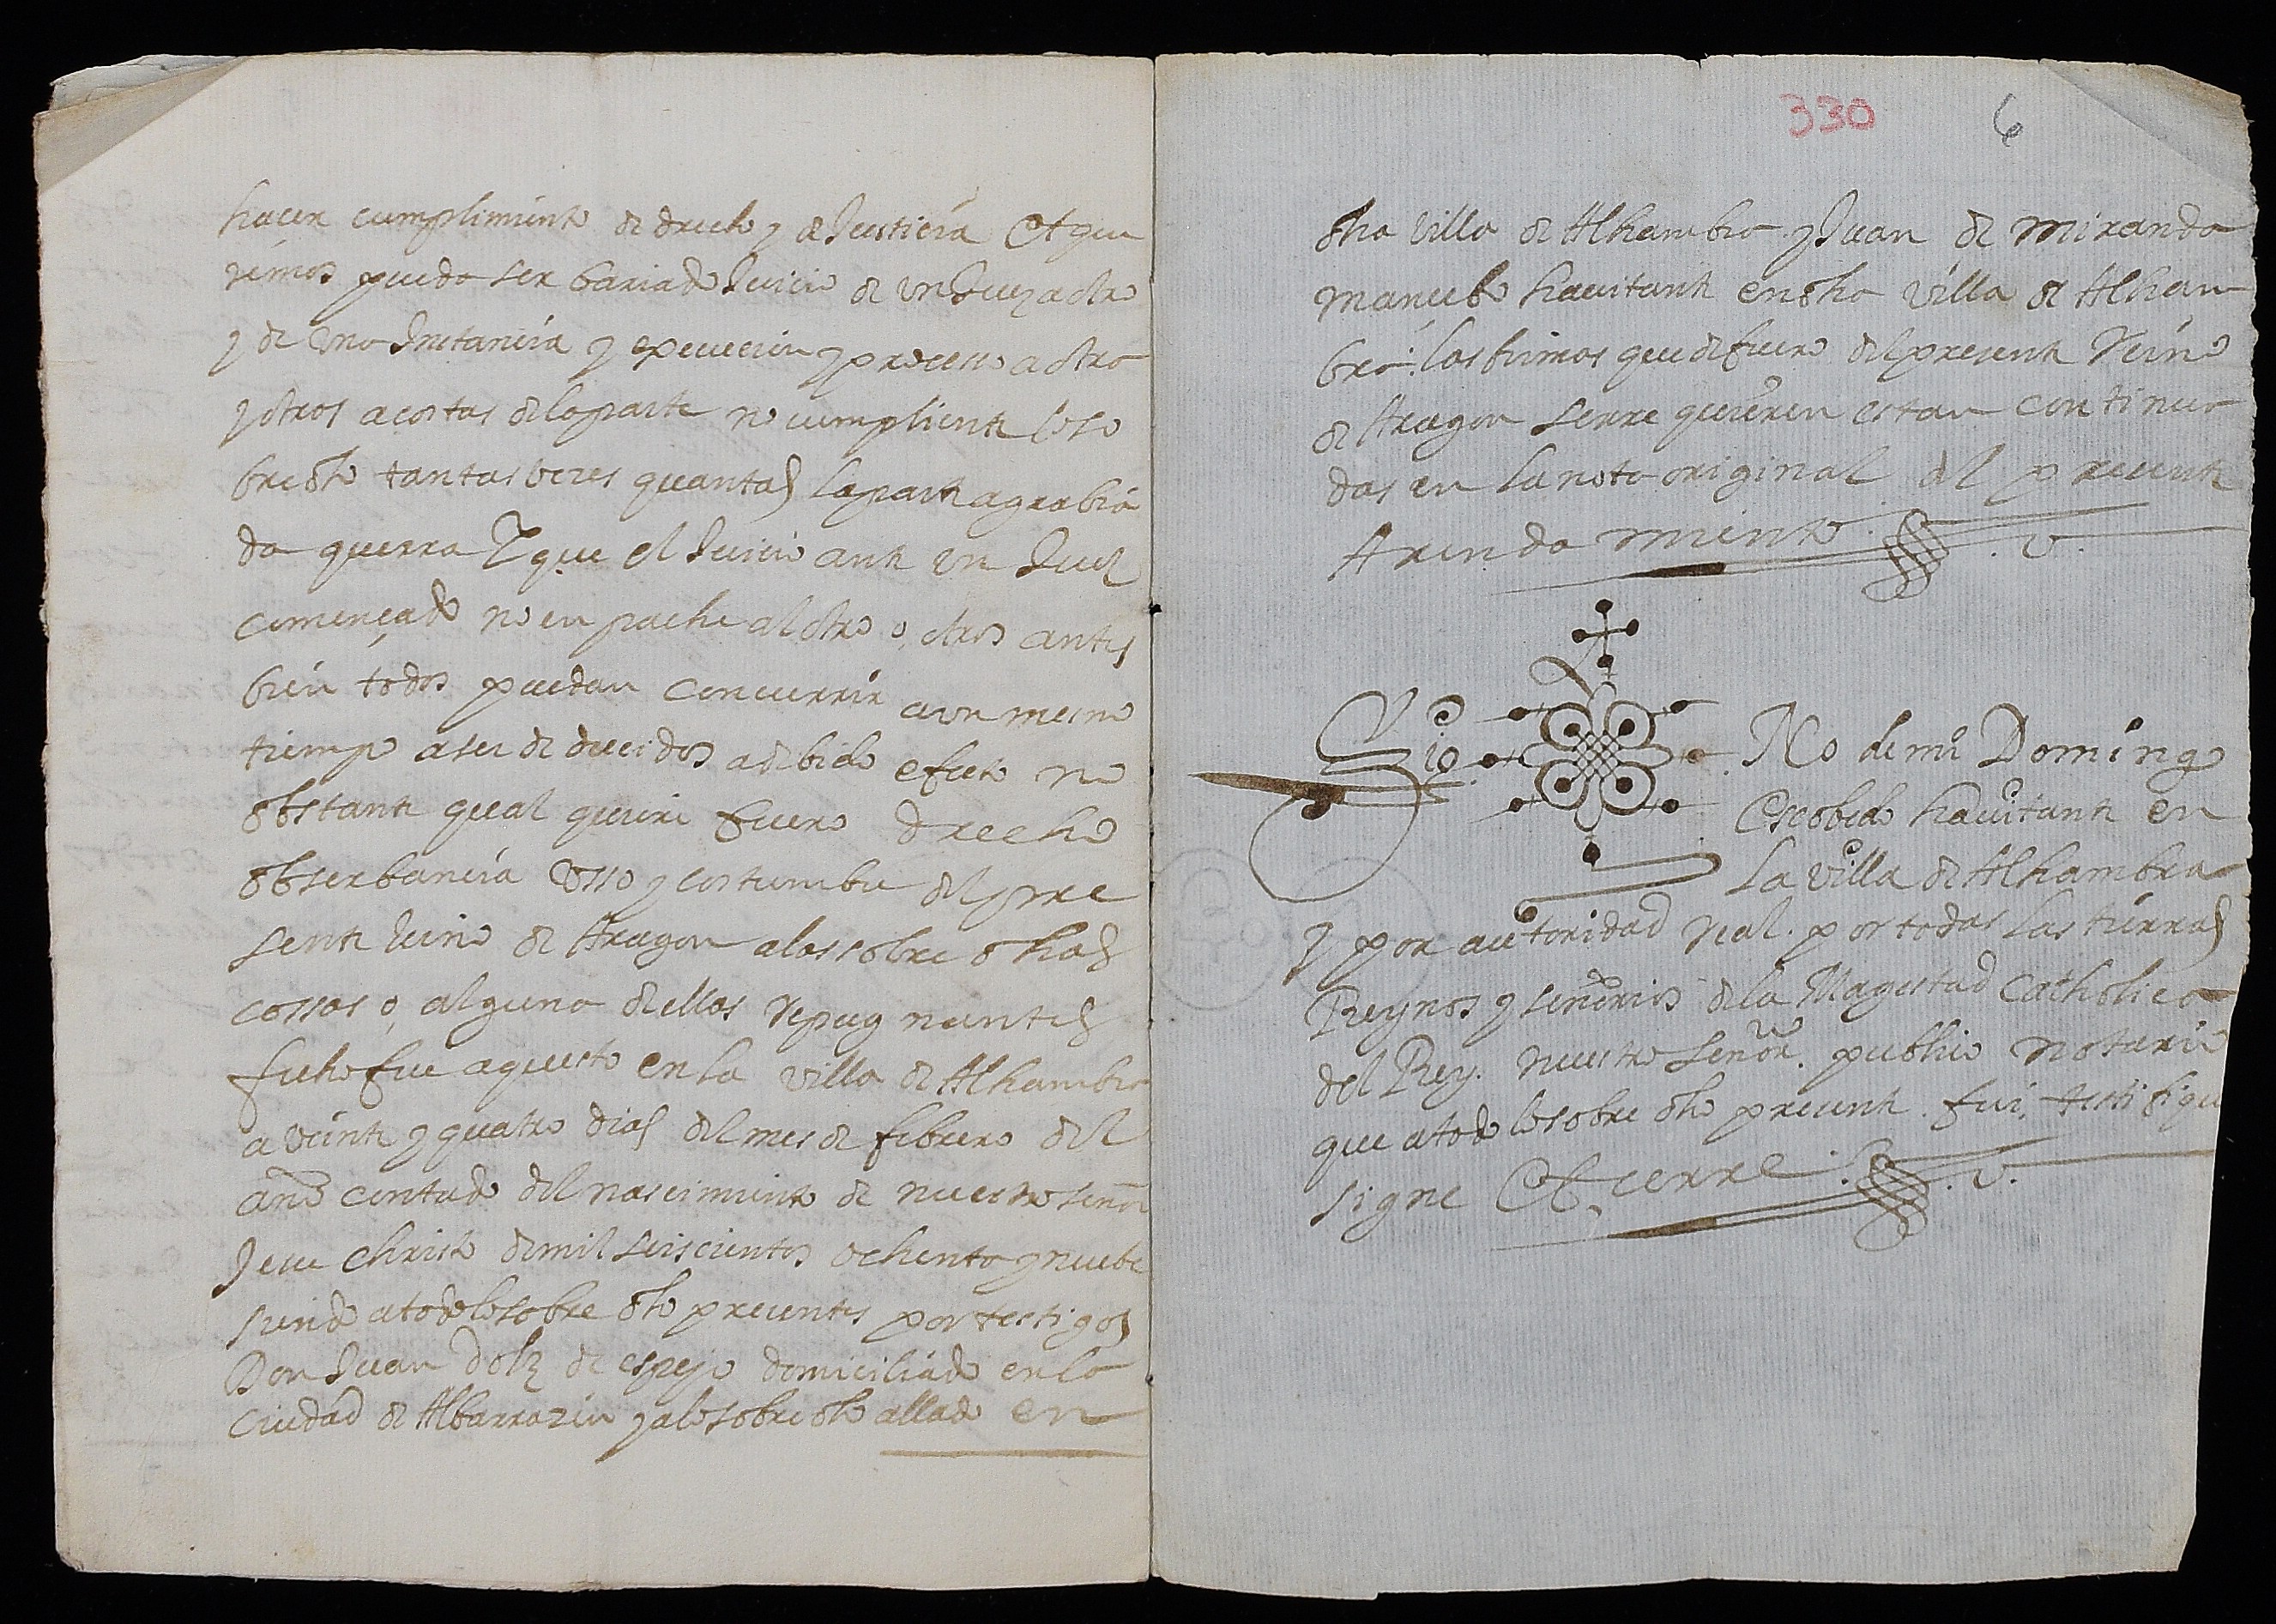 hacer cumplimiento de drecho y de Justicia Et que
remos pueda ser bariado Juicio de un Juez a otro
y de una Instancia y execucion y proceso a otro
y otros a costas de la parte no cumpliente lo so
bre dho tantas veces quantas la parte agrabia
da querra Y que el Juicio ante un Juez
començado no enpache al otro o, otros antes
bien todos puedan concurrir a un mesmo
tiempo a ser deducidos a debido efecto no
obstante qual quiere fuero drecho
obserbancia vsso y costumbre del pre
sente Reino de Aragon a las sobre dhas
cossas o, alguna de ellas repugnantes
fecho fue aquesto en la villa de Alhambra
a veinte y quatro dias del mes de febrero del
año contado del nascimiento de nuestro señor
Jesu Christo de mil seiscientos ochenta y nuebe
siendo a todo lo sobre dho presentes por testigos
Don Juan dolz de espejo domiciliado en la
Ciudad de Albarrazin y a lo sobre dho allado en
330 6
dha villa de Alhambra y Juan de Miranda
mancebo havitante en dha villa de Alham
bra: las firmas que de fuero del presente Reino
de Aragon se rre quieren estan continua
das en la nota original del presente
Arendamiento
Sig No de mi Domingo
Escobedo havitante en
La villa de Alhambra
y por autoridad real por todas las tierras
Reynos y señorios de la Magestad Catholica
del Rey nuestro señor publico notario
que a todo lo sobre dho presente fui, testifique
signe Et cerre